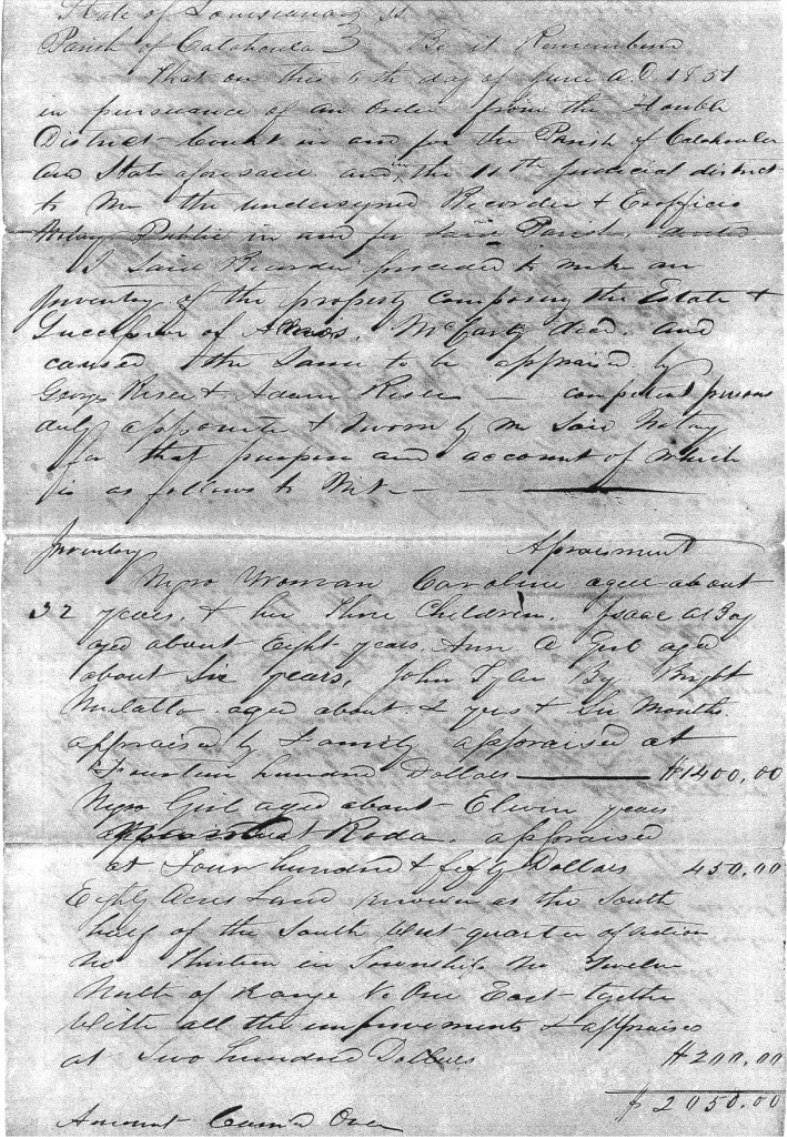 State of Louisiana } ss
Parish of Catahoula } Be it Remembered
that on this 6th day of June A.D. 1851
in pursuance of an order from the Honble
District Court in and for the Parish of Catahoula
and State aforesaid and in the 11th Judicial district
to Me the undersigned Recorder & Exofficio
Notary Public in and for said Parish, directed
I Said Recorder proceeded to make an
Inventory of the property composing the Estate &
Succession of McCarty decd. and
caused the Same to be appraised by
George Riser & Adam Riser — competent persons
duly appointed & Sworn by me Said Notary
for that purpose and account of which
is as follows to Wit —
Inventory Appraisment
Negro Woman Caroline aged about
32 years, & her three Children. Isaac a Boy
aged about Eight years, Ann a Girl aged
about Six years, John Tyler Boy Bright
Mulatto aged about 2 yers & Six Months.
appraised by Family appraised at
Fourteen hundred Dollars — $1400.00
Negro Girl aged about Elevin years
Roda. appraised
at Four hundred & fifty Dollars 450.00
Eighty Acres Land known as the South
half of the South West quarter of section
No Thirteen in Township No Twelve
North of Range No One East together
With all the improvements & appraised
at Two hundred Dollars $200.00
$2050.00
Amount Carrid Over